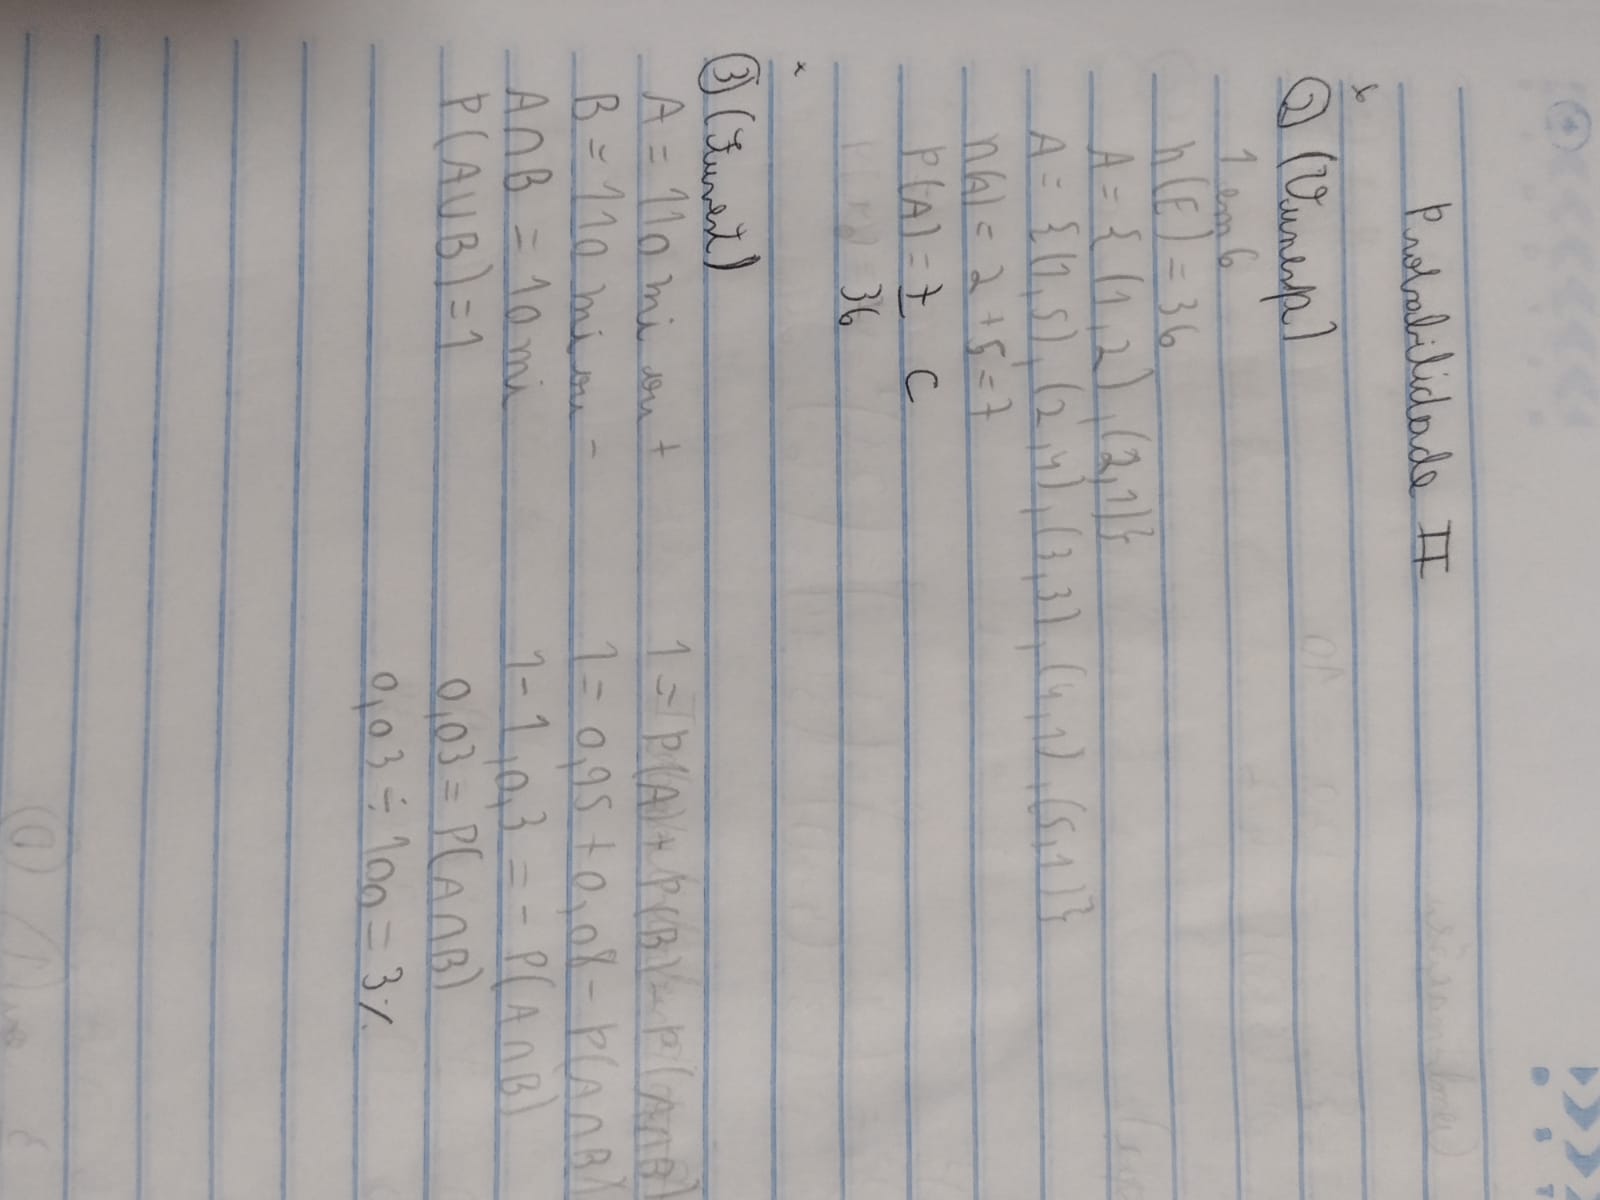 Probabilidade II
② (Vunesp)
1 em 6
n(E) = 36
A = { (1,2), (2,1)}
A = {(1,5), (2,4), (3,3), (4,2), (5,1)}
n(A) = 2 + 5 = 7
P(A) = 7 C
36
③ (Fuvest)
A = 110 mi ou +
B = 110 mi ou -
A∩B = 10 mi
P(A∪B) = 1
1 = P(A) + P(B) - P(A∩B)
1 = 0,95 + 0,08 - P(A∩B)
1 - 1,0,3 = - P(A∩B)
0,03 = P(A∩B)
0,03 ÷ 100 = 3%